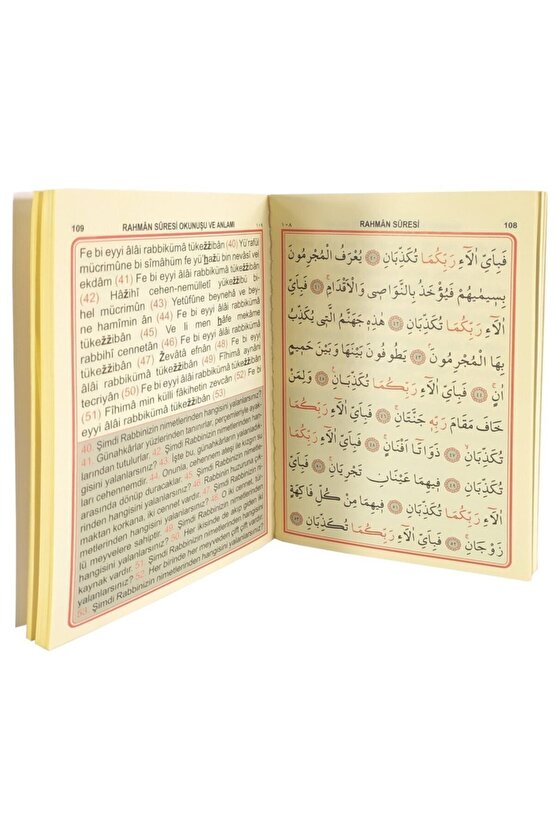 109 RAHMÂN SÛRESİ OKUNUŞU VE ANLAMI ١٠٩
Fe bi eyyi âlâi rabbikümâ tükeżżibân (40) Yü'rafül
mücrimûne bi sîmâhüm fe yü'ḫażü bin nevâsî vel
ekdâm (41) Fe bi eyyi âlâi rabbikümâ tükeżżibân
(42) Hâżihî cehen-nemülletî yükeżżibü bi-
hel mücrimûn (43) Yetûfûne beynehâ ve bey-
ne hamîmin ân (44) Fe bi eyyi âlâi rabbikümâ
tükeżżibân (45) Ve li men ḫâfe mekâme
rabbihî cennetân (46) Fe bi eyyi âlâi rabbikümâ
tükeżżibân (47) Żevâtâ efnân (48) Fe bi eyyi
âlâi rabbikümâ tükeżżibân (49) Fîhimâ aynâni
tecriyân (50) Fe bi eyyi âlâi rabbikümâ tükeżżibân
(51) Fîhima min külli fâkihetin zevcân (52) Fe bi
eyyi âlâi rabbikümâ tükeżżibân (53)
40. Şimdi Rabbinizin nimetlerinden hangisini yalanlarsınız?
41. Günahkârlar yüzlerinden tanınırlar, perçemleriyle ayak-
larından tutulurlar. 42. Şimdi Rabbinizin nimetlerinden han-
gisini yalanlarsınız? 43. İşte bu, günahkârların yalanladık-
ları cehennemdir. 44. Onunla cehennem ateşi ile kızgın su
arasında dönüp duracaklar. 45. Şimdi Rabbinizin nimetle-
rinden hangisini yalanlarsınız? 46. Rabbinin huzuruna çık-
maktan korkana, iki cennet vardır. 47. Şimdi Rabbinizin ni-
metlerinden hangisini yalanlarsınız? 48. O iki cennet, tür-
lü meyvelere sahiptir. 49. Şimdi Rabbinizin nimetlerinden
hangisini yalanlarsınız? 50. Her ikisinde de akıp giden iki
kaynak vardır. 51. Şimdi Rabbinizin nimetlerinden hangisini
yalanlarsınız? 52. Her birinde her meyveden çift çift vardır.
53. Şimdi Rabbinizin nimetlerinden hangisini yalanlarsınız?
١٠٨ RAHMÂN SÛRESİ 108
فَبِاَيِّ اٰلَٓاءِ رَبِّكُمَا تُكَذِّبَانِ ﴿٤٠﴾ يُعْرَفُ الْمُجْرِمُونَ
بِسِيمٰيهُمْ فَيُؤْخَذُ بِالنَّوَاصٖي وَالْاَقْدَامِ ﴿٤١﴾ فَبِاَيِّ
اٰلَٓاءِ رَبِّكُمَا تُكَذِّبَانِ ﴿٤٢﴾ هٰذِهٖ جَهَنَّمُ الَّتٖي يُكَذِّبُ
بِهَا الْمُجْرِمُونَ ﴿٤٣﴾ يَطُوفُونَ بَيْنَهَا وَبَيْنَ حَمٖيمٍ
اٰنٍ ﴿٤٤﴾ فَبِاَيِّ اٰلَٓاءِ رَبِّكُمَا تُكَذِّبَانِ ﴿٤٥﴾ وَلِمَنْ
خَافَ مَقَامَ رَبِّهٖ جَنَّتَانِ ﴿٤٦﴾ فَبِاَيِّ اٰلَٓاءِ رَبِّكُمَا
تُكَذِّبَانِ ﴿٤٧﴾ ذَوَاتَٓا اَفْنَانٍ ﴿٤٨﴾ فَبِاَيِّ اٰلَٓاءِ رَبِّكُمَا
تُكَذِّبَانِ ﴿٤٩﴾ فٖيهِمَا عَيْنَانِ تَجْرِيَانِ ﴿٥٠﴾ فَبِاَيِّ
اٰلَٓاءِ رَبِّكُمَا تُكَذِّبَانِ ﴿٥١﴾ فٖيهِمَا مِنْ كُلِّ فَاكِهَةٍ
زَوْجَانِ ﴿٥٢﴾ فَبِاَيِّ اٰلَٓاءِ رَبِّكُمَا تُكَذِّبَانِ ﴿٥٣﴾